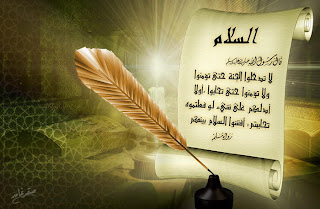 السلام
قال رسول الله صلى الله عليه وسلم
لا تدخلوا الجنة حتى تؤمنوا
ولا تؤمنوا حتى تحابوا ، أولا
أدلكم على شيء لو فعلتموه
تحاببتم ، أفشوا السلام بينكم
رواه مسلم